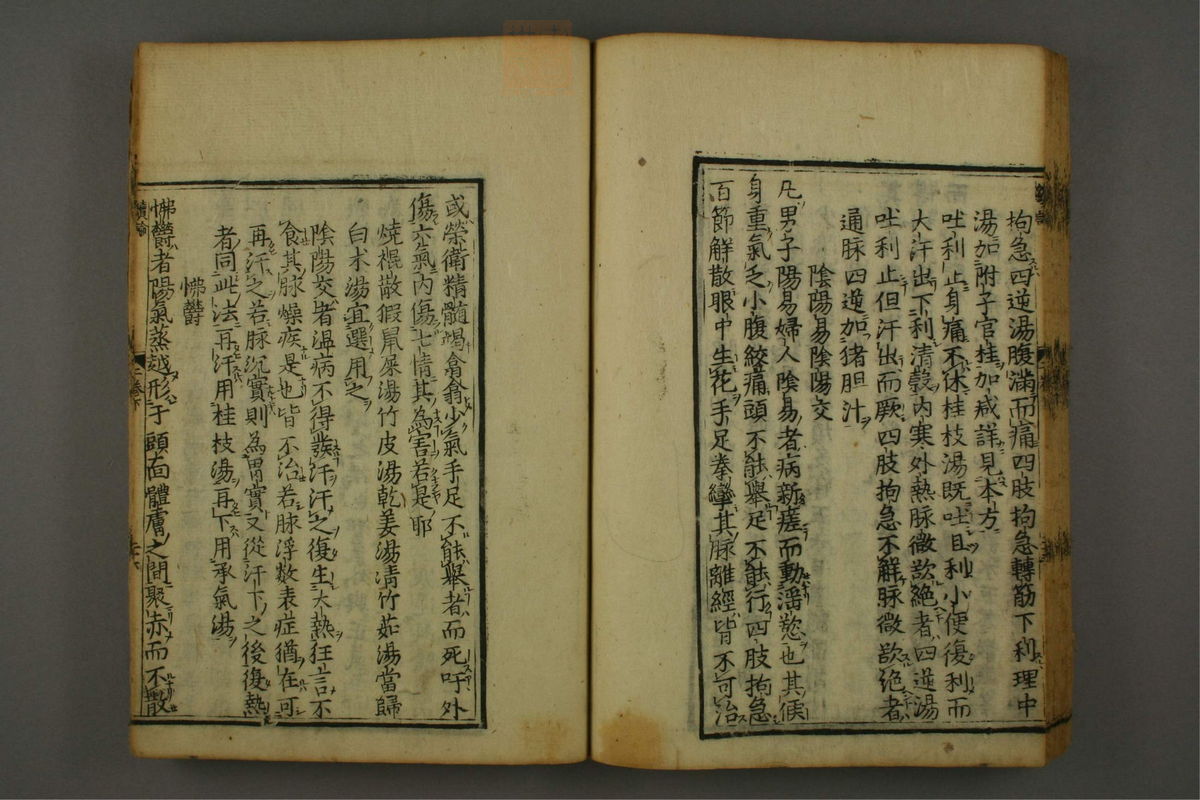 拘急四逆湯腹滿而痛四肢拘急轉筋下利理中
湯加附子官桂加减詳見本方
吐利止身痛不休桂枝湯既吐且利小便復利而
大汗出下利清穀内寒外熱脉微欲絶者四逆湯
吐利止但汗出而厥四肢拘急不解脉微欲絶者
通脉四逆加猪胆汁
陰陽易陰陽交
凡男子陽易婦人陰易者病新瘥而動滛慾也其候
身重氣乏小腹絞痛頭不能舉足不能行四肢拘急
百節解散眼中生花手足拳攣其脉離經皆不可治
或榮衛精髓竭翕翕少氣手足不能舉者而死吁外
傷六氣内傷七情其為害若是耶
燒裩散猳鼠屎湯竹皮湯乾姜湯清竹茹湯當歸
白木湯宜選用之
陰陽交者温病不得發汗汗之復生大熱狂言不
食其脉燥疾是也皆不治若脉浮数表症猶在可
再汗之若脉沉實則為胃實又從汗下之後復熱
者同此法再汗用桂枝湯再下用承氣湯
怫鬱
怫鬱者陽氣蒸越形于頭面體膚之間聚赤而不散